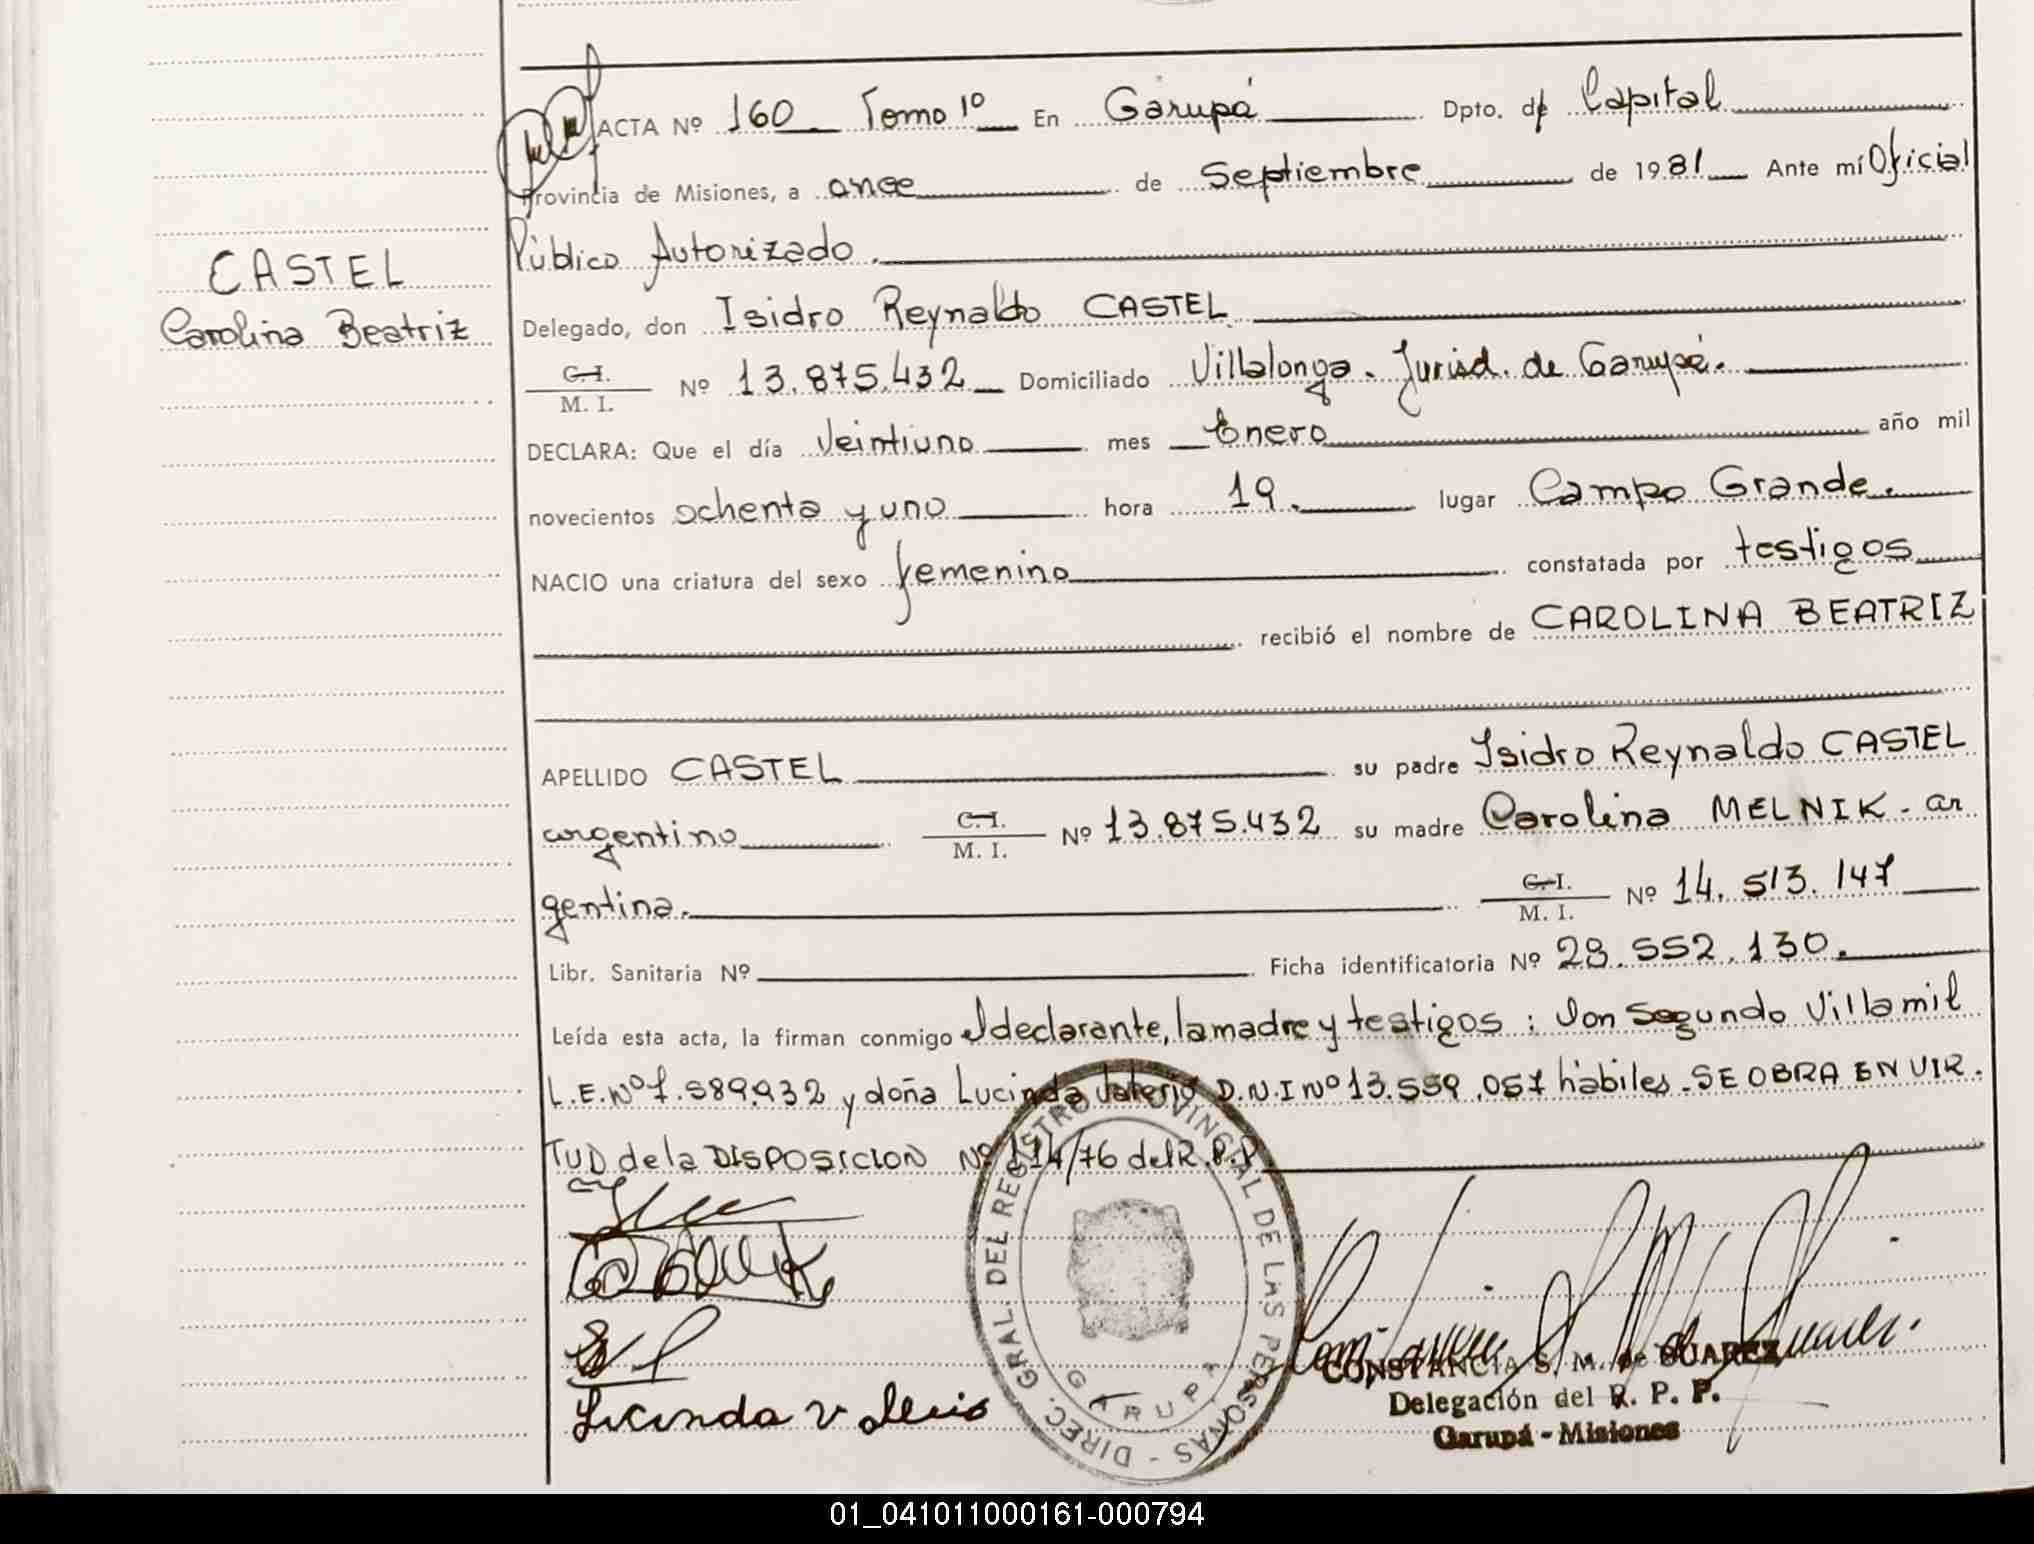 ACTA Nº 160 Tomo 1º En Garupá Dpto. de Capital
Provincia de Misiones, a once de Septiembre de 1981 Ante mí Oficial
Público Autorizado.
CASTEL
Carolina Beatriz
Delegado, don Isidro Reynaldo CASTEL
C.I.
M. I. Nº 13.875.432 Domiciliado Villalonga. Jurisd. de Garupá.
DECLARA: Que el día Veintiuno mes Enero año mil
novecientos ochenta y uno hora 19. lugar Campo Grande.
NACIO una criatura del sexo femenino constatada por testigos
recibió el nombre de CAROLINA BEATRIZ
APELLIDO CASTEL su padre Isidro Reynaldo CASTEL
argentino C.I.
M. I. Nº 13.875.432 su madre Carolina MELNIK - ar
gentina. C.I.
M. I. Nº 14.513.147
Libr. Sanitaria Nº Ficha identificatoria Nº 28.552.130.
Leída esta acta, la firman conmigo el declarante, la madre y testigos: don Segundo Villamil
L.E.Nº 7.589.932 y doña Lucinda Valerio D.N.I Nº 13.559.057 hábiles - SE OBRA EN VIR.
TUD de la DISPOSICION Nº 114/76 del R.P.P
Lucinda Valerio
DIREC. GRAL. DEL REGISTRO PROVINCIAL DE LAS PERSONAS -
GARUPA
CONSTANCIA S. M. de SUAREZ
Delegación del R. P. P.
Garupá - Misiones
01_041011000161-000794